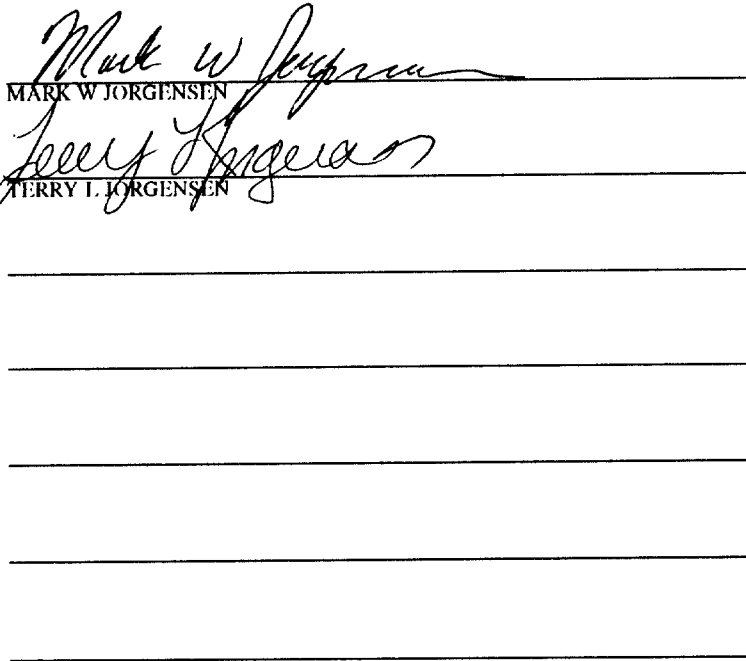 Mark W Jorgensen
MARK W JORGENSEN
Terry L Jorgensen
TERRY L JORGENSEN